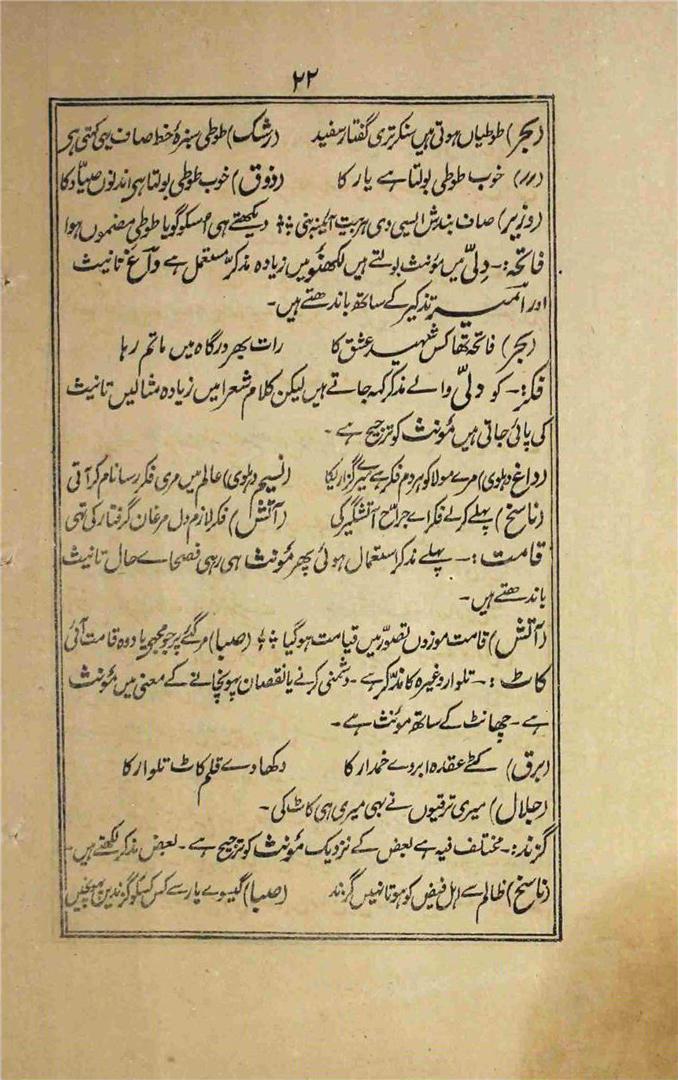 ۲۲
(بحر) طوطیاں ہوتی ہیں سنکر تری گفتار سفید (رشک) طوطی سبزۂ خط صاف یہی کہتی ہی
(〃) خوب طوطی بولتا ہے یار کا (ذوق) خوب طوطی بولتا ہی اندنوں صیّاد کا
(وزیر) صاف بندش ایسی دی ہر بیت آئینہ بنی ؞ دیکھتے ہی اسکو گویا طوطی مضموں ہوا
فاتحہ:۔ دِلّی میں مؤنث بولتے ہیں لکھنؤ میں زیادہ مذکر مستعمل ہے داغ تانیث
اور امیر تذکیر کے ساتھ باندھتے ہیں۔
(بحر) فاتحہ تھا کس شہید عشق کا رات بھر درگاہ میں ماتم رہا
فکر:۔ کو دلّی والے مذکر کہہ جاتے ہیں لیکن کلام شعرا میں زیادہ مثالیں تانیث
کی پائی جاتی ہیں مؤنث کو ترجیح ہے۔
(داغ دہلوی) مرے مولا کو ہر دم فکر ہے میرے گزاریکا (نسیم دہلوی) عالم میں مری فکر رسا نام کر آتی
(ناسخ) پہلے کر لے فکر اے جراح آتشگیر کی (آتش) فکر لازم دل مرغان گرفتار کی تھی
قامت:۔ پہلے مذکر استعمال ہوئی پھر مؤنث ہی رہی فصحاے حال تانیث
باندھتے ہیں۔
(آتش) قامت موزوں تصوّر میں قیامت ہو گیا ؞ (صبا) مر گئے پر جو مجھے یاد وہ قامت آئی
کاٹ:۔ تلوار وغیرہ کا مذکر ہے۔ دشمنی کرنے یا نقصان پہونچانے کے معنی میں مؤنث
ہے۔ چھانٹ کے ساتھ مؤنث ہے۔
(برق) کٹے عقدہ ابروے خمدار کا دکھا دے قلم کاٹ تلوار کا
(جلال) میری ترقیوں نے بھی میری ہی کاٹ کی۔
گزند:۔ مختلف فیہ ہے بعض کے نزدیک مؤنث کو ترجیح ہے۔ بعض مذکر لکھتے ہیں۔
(ناسخ) ظالم سے اہل فیض کو ہوتا نہیں گزند (صبا) گیسوے یار سے کس کسکو گزندیں پہنچیں